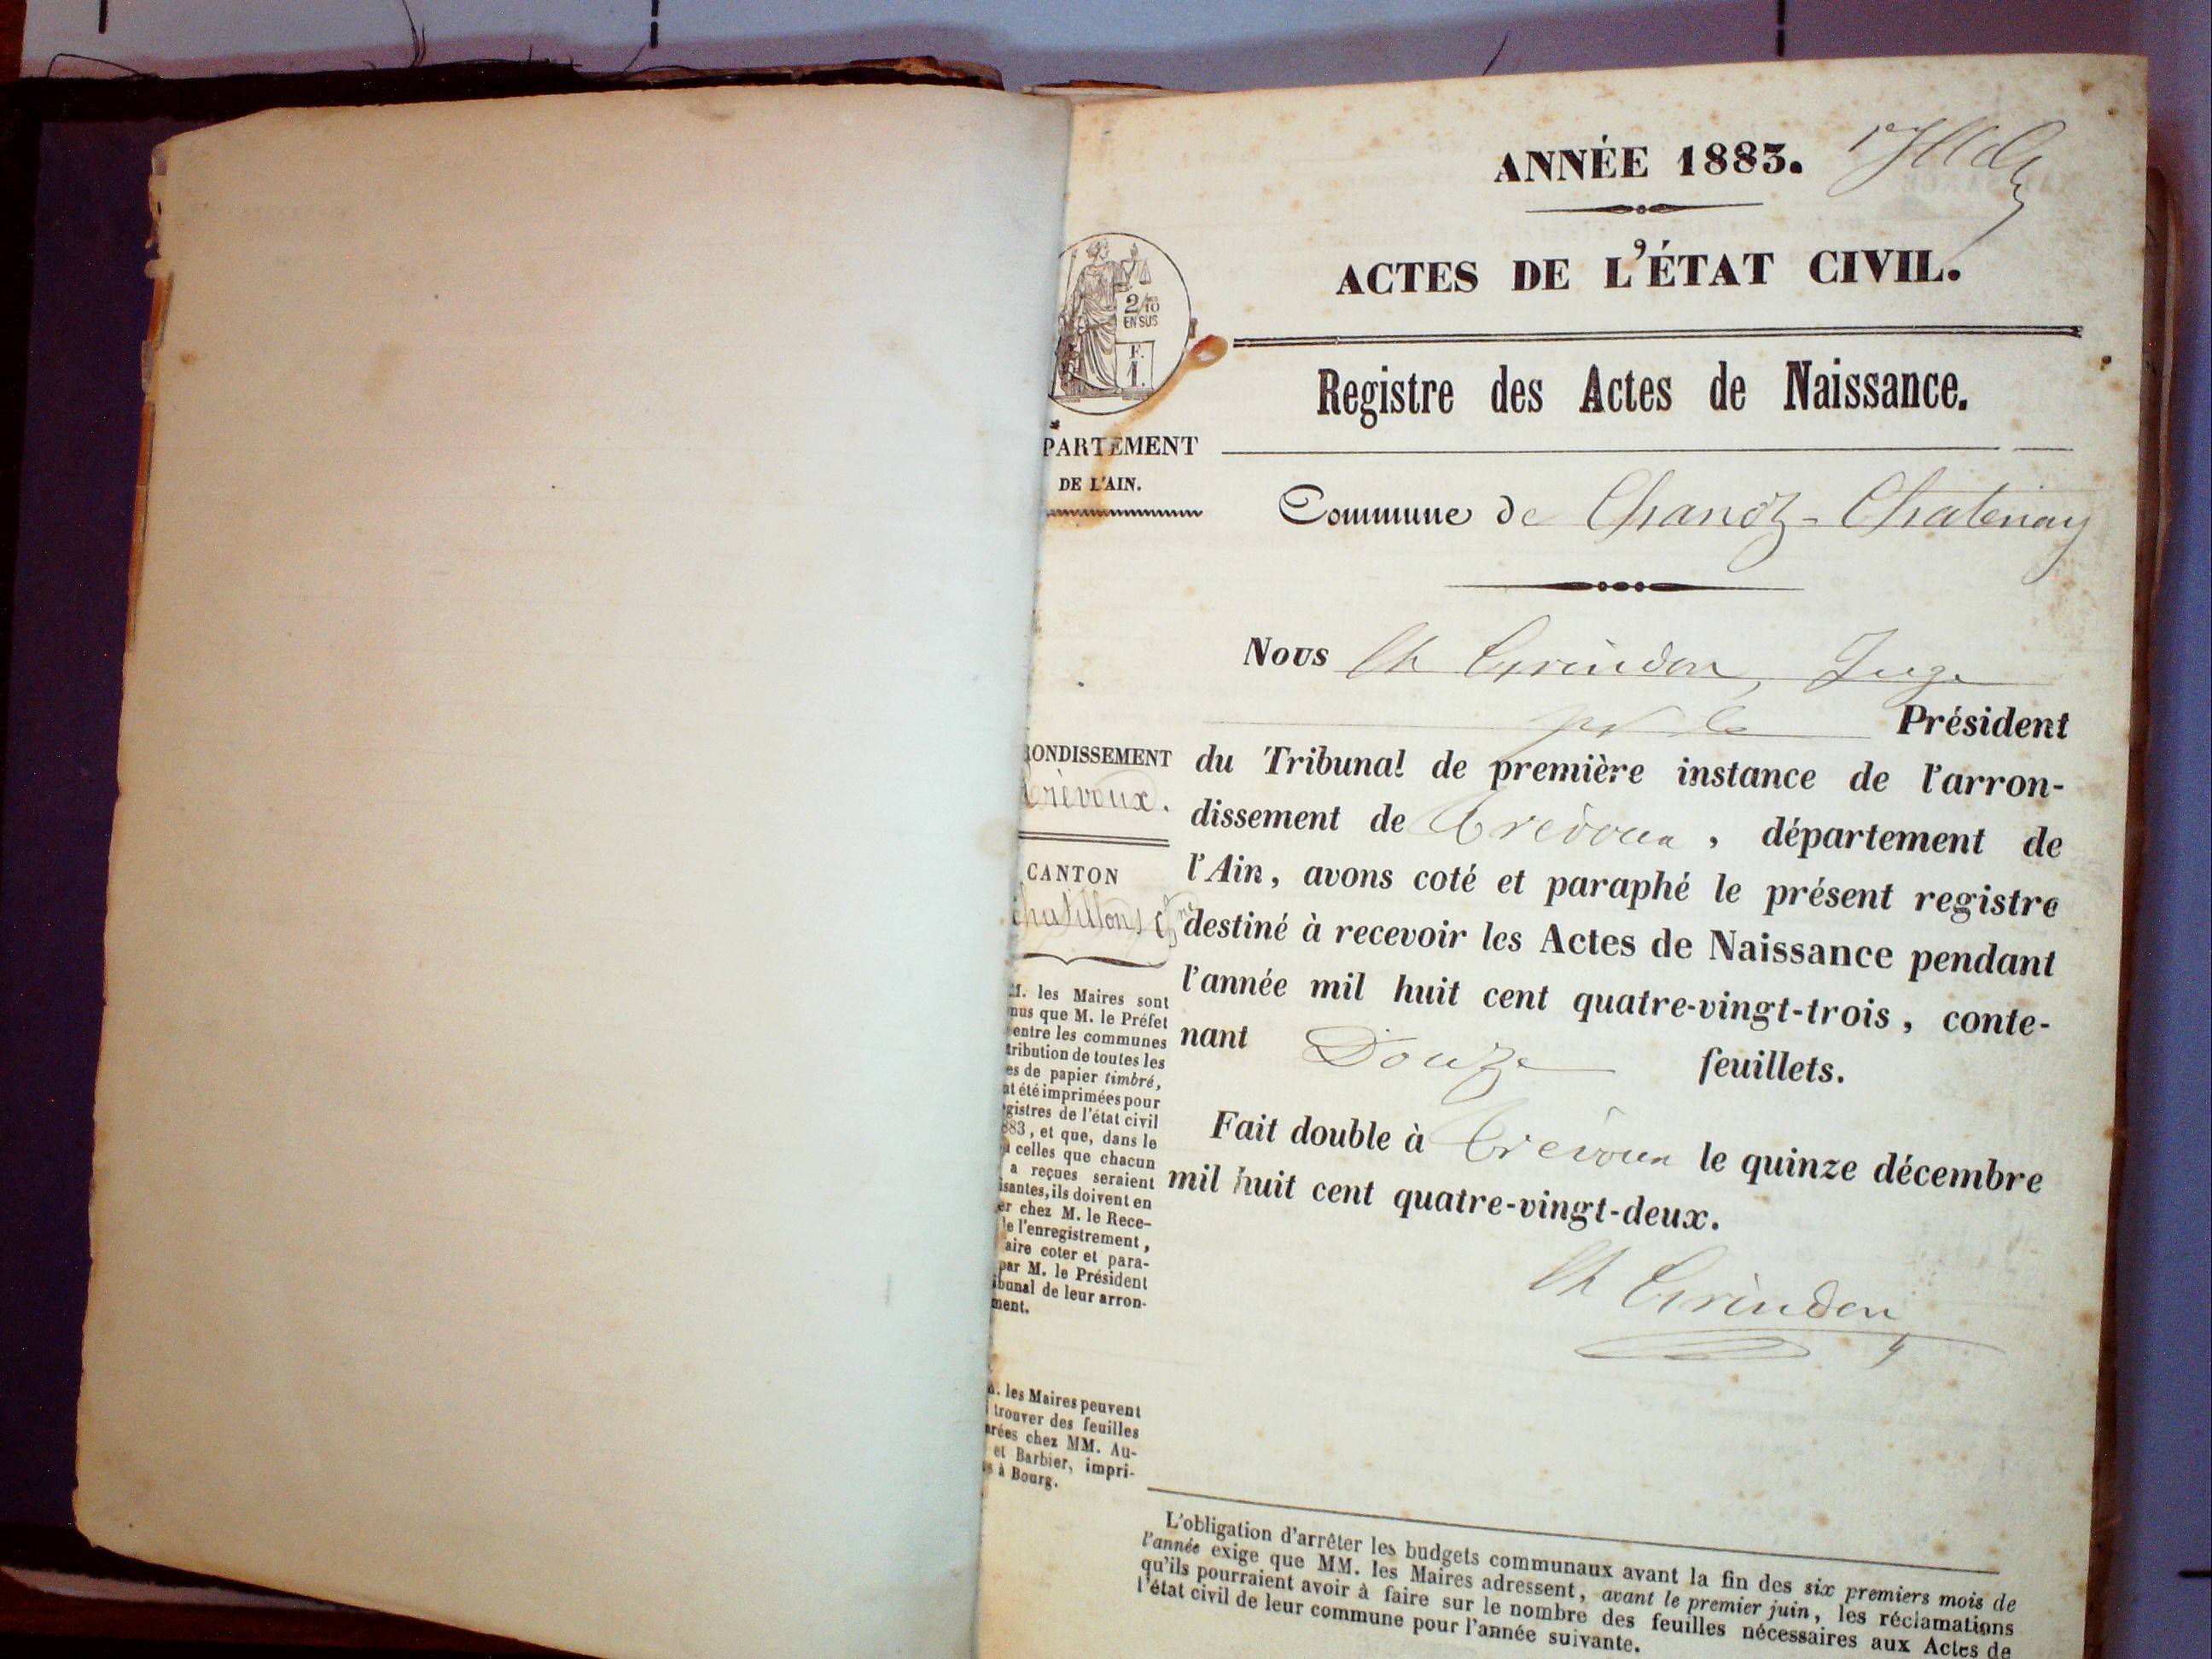 ANNÉE 1883.
ACTES DE L'ÉTAT CIVIL.
2/10
EN SUS
F.
1.
Registre des Actes de Naissance.
PARTEMENT
DE L'AIN.
Commune de Chanoz-Chatenay
Nous Ch Grindon, Juge
pr le Président
du Tribunal de première instance de l'arron-
dissement de Trévoux, département de
l'Ain, avons coté et paraphé le présent registre
destiné à recevoir les Actes de Naissance pendant
l'année mil huit cent quatre-vingt-trois, conte-
nant Douze feuillets.
Fait double à Trévoux le quinze décembre
mil huit cent quatre-vingt-deux.
Ch Grindon
RONDISSEMENT
Trévoux.
CANTON
Chatillon s/
M. les Maires sont
nus que M. le Préfet
entre les communes
tribution de toutes les
es de papier timbré,
nt été imprimées pour
gistres de l'état civil
883, et que, dans le
celles que chacun
a reçues seraient
isantes, ils doivent en
er chez M. le Rece-
le l'enregistrement,
aire coter et para-
par M. le Président
ibunal de leur arron-
ment.
. les Maires peuvent
trouver des feuilles
arées chez MM. Au-
et Barbier, impri-
s à Bourg.
L'obligation d'arrêter les budgets communaux avant la fin des six premiers mois de
l'année exige que MM. les Maires adressent, avant le premier juin, les réclamations
qu'ils pourraient avoir à faire sur le nombre des feuilles nécessaires aux Actes de
l'état civil de leur commune pour l'année suivante.